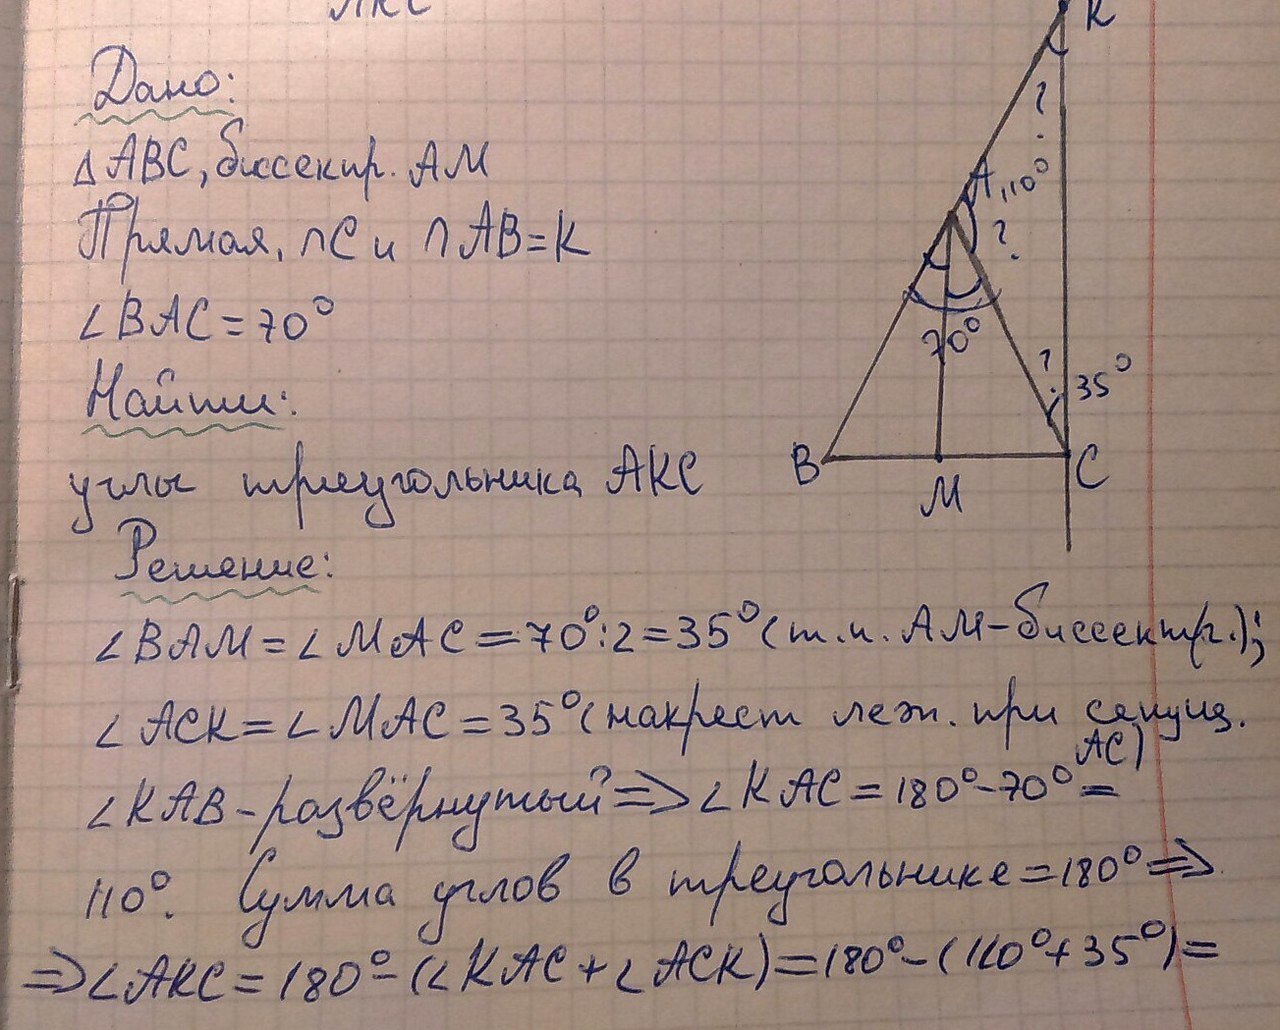 АКС
Дано:
△ABC, биссектр. AM
Прямая, ∩C и ∩AB=K
∠BAC=70°
Найти:
углы треугольника АКС
Решение:
∠BAM=∠MAC=70°:2=35°(т.к. AM-биссектр.);
∠ACK=∠MAC=35°(накрест леж. при секущ. AC)
∠KAB-развёрнутый⇒∠KAC=180°-70°=
110°. Сумма углов в треугольнике=180°⇒
⇒∠AKC=180°-(∠KAC+∠ACK)=180°-(110°+35°)=
K
?
A 110°
?
70°
?
35°
B
M
C